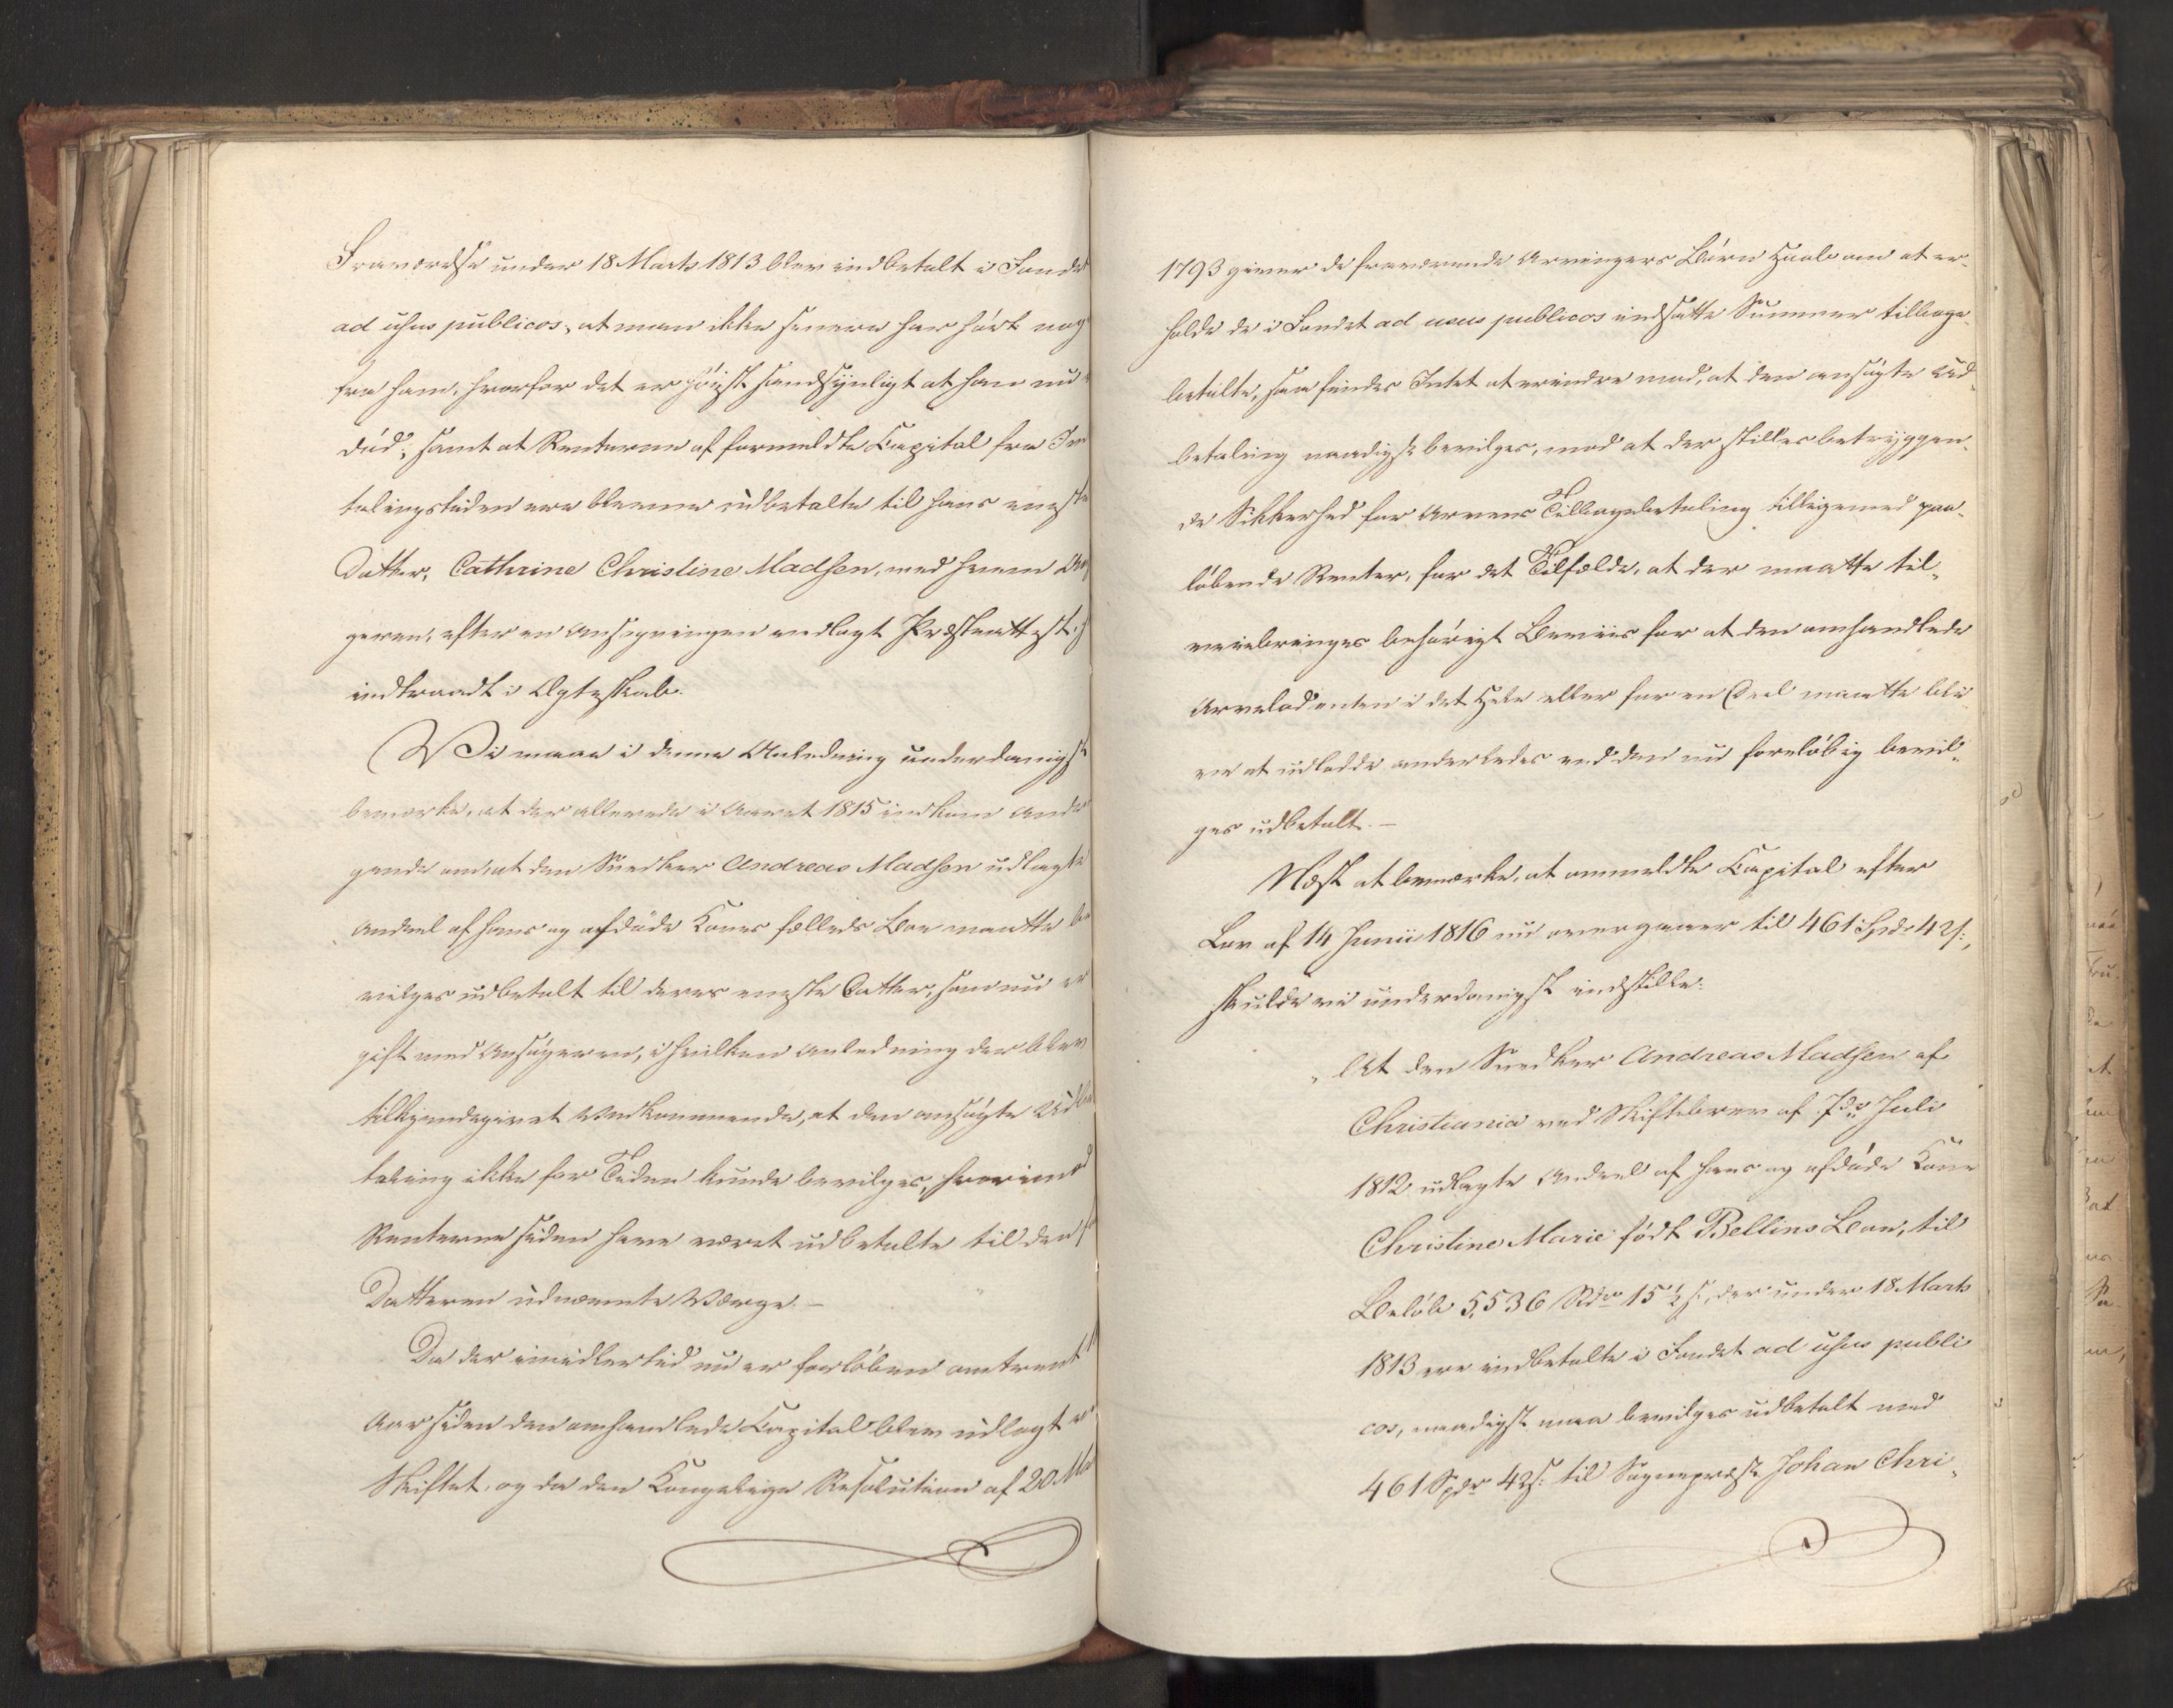 Fraværelse under 18 Marts 1813 blev indbetalt i Fondet
ad usus publicos, at man ikke senere har hørt nog
fra ham, hvorfor det er høist sandsynligt at han nu
død; samt at Renterne af formeldte Capital fra Ind
talingstiden ere blevne udbetalte til hans eneste
Datter, Cathrine Christine Madsen, med hvem An
geren, efter en Ansøgningen vedlagt Præsteattest,
indtraadt i Ægteskab.
Vi maae i denne Anledning underdanigst
bemærke, at der allerede i Aaret 1815 indkom And
gende om, at den Snedker Andreas Madsen udlagte
Andeel af hans og afdøde Kones fælleds Boe maatte be
vilges udbetalt til deres eneste Datter, som nu er
gift med Ansøgeren, i hvilken Anledning der blev
tilkjendegivet Vedkommende, at den ansøgte Udbe
taling ikke for Tiden kunde bevilges, hvorimod
Renterne siden have været udbetalte til den for
Datteren udnævnte Værge. —
Da der imidlertid nu er forløben omtrent
Aar siden den omhandlede Capital blev udlagt
Skiftet, og da den Kongelige Resolution af 20 Ma
1793 giver de fraværende Arvingers Børn Haab om at er¬
holde de i Fondet ad usus publicos indsatte Summer tilbage¬
betalte, saa findes Intet at erindre mod, at den ansøgte Ud¬
betaling naadigst bevilges, mod at der stilles betryggen¬
de Sikkerhed for Arvens Tilbagebetaling tilligemed paa¬
løbende Renter, for det Tilfælde, at der maatte til¬
veiebringes behørigt Beviis for at den omhandlede
Arvelod enten i det Hele eller for en Deel maatte bli¬
ve at udlodde anderledes end den nu foreløbig bevil¬
ges udbetalt. —
Næst at bemærke, at ommeldte Capital efter
Lov af 14 Junii 1816 nu overgaaer til 461 Spd. 42 s.,
skulde vi underdanigst indstille:
„At den Snedker Andreas Madsen af
Christiania ved Skiftebrev af 7de Juli
1812 udlagte Andeel af hans og afdøde Kone
Christine Marie født Bellins Boe, til
Beløb 5,536 Rdr 15½ s., der under 18 Marts
1813 ere indbetalte i Fondet ad usus publi
cos, naadigst maa bevilges udbetalt med
461 Spdr 42 s. til Sognepræst Johan Chri¬